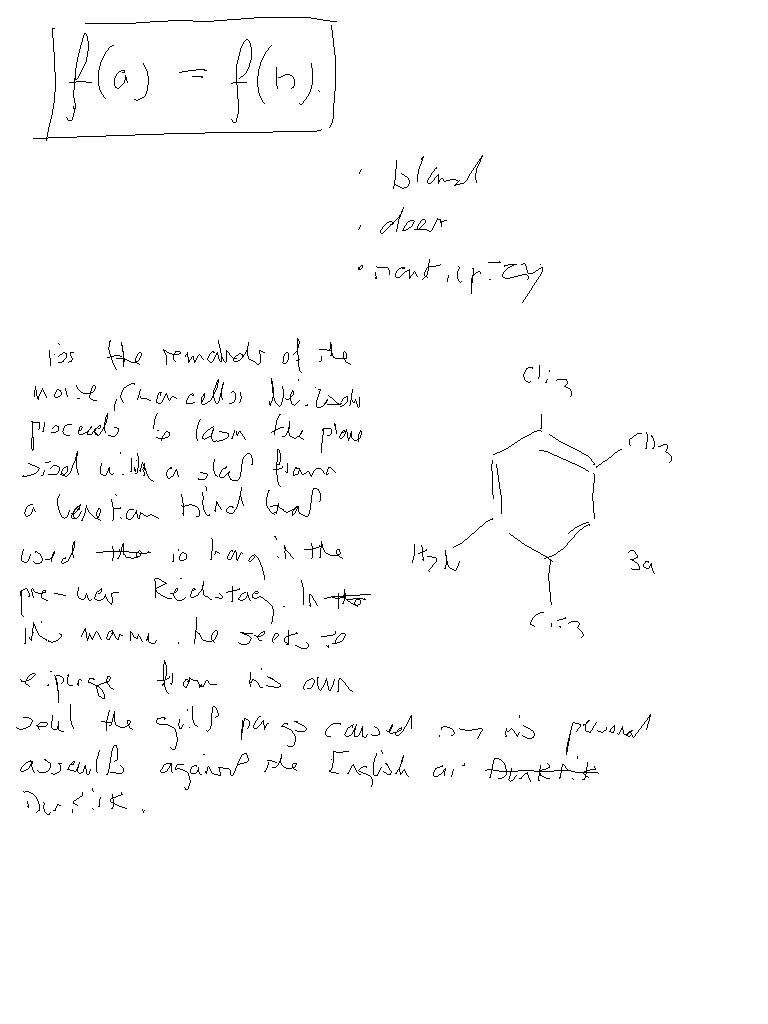 f(a) = f(b).
· bland
· doer
for the of the
noise, Chancellor
proceeds to the
with a slat from
a Venetian blind
used to hang in the
pre-war Reichstag. In
this manner, he seeks to
expurge from his own
soul the guilt pangs caused by his personal
assaults against the English at
Dunkirk.
CH3
CH3
H2N
3a
CH3